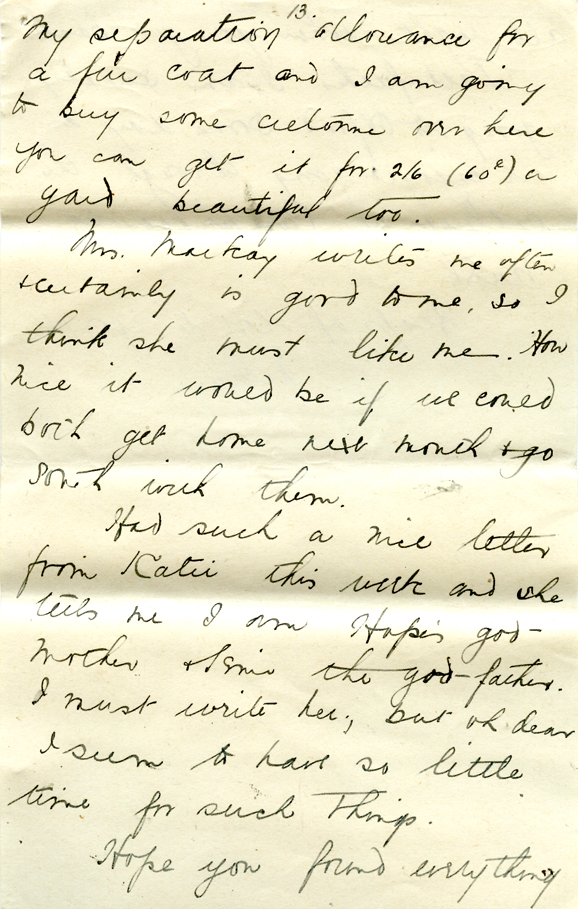 13.
My separation allowance for
a fur coat and I am going
to buy some cretonne over here
you can get it for 2/6 (60¢) a
yard beautiful too.
Mrs. Mackay writes me often
+ certainly is good to me, so I
think she must like me. How
nice it would be if we could
both get home next month + go
South with them.
Had such a nice letter
from Katie this week and she
tells me I am Hope's god-
mother + the god-father.
I must write her, but oh dear
I seem to have so little
time for such things.
Hope you found everything